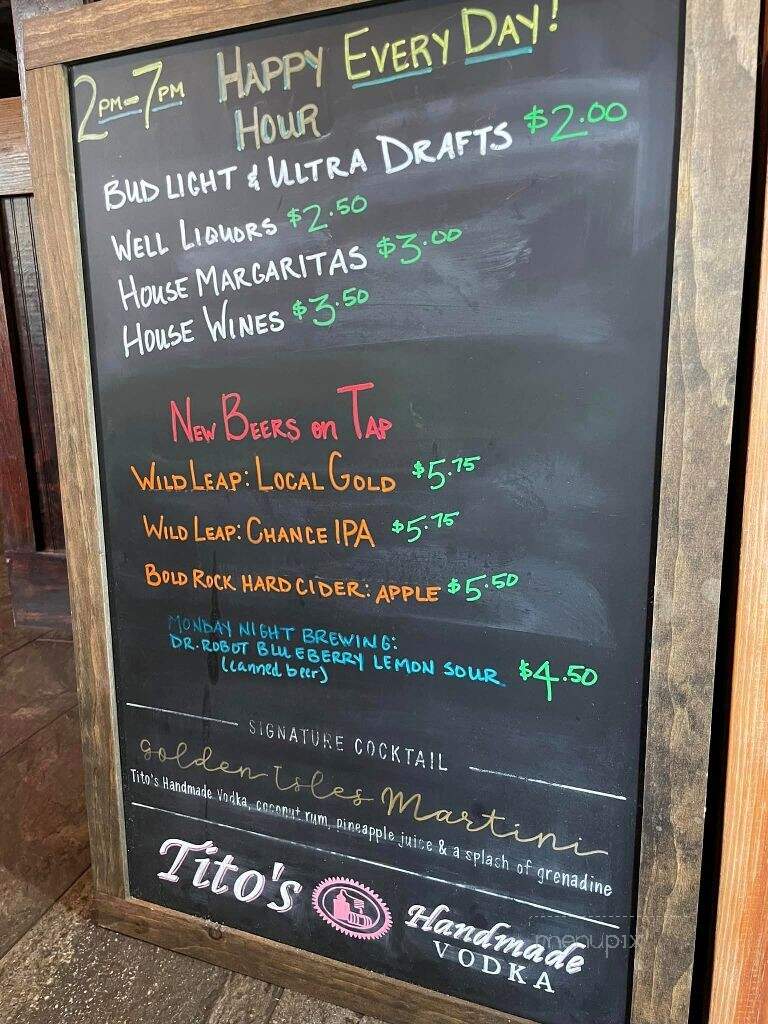 2PM-7PM HAPPY EVERY DAY!
HOUR
BUD LIGHT & ULTRA DRAFTS $2.00
WELL LIQUORS $2.50
HOUSE MARGARITAS $3.00
HOUSE WINES $3.50
NEW BEERS on TAP
WILD LEAP: LOCAL GOLD $5.75
WILD LEAP: CHANCE IPA $5.75
BOLD ROCK HARD CIDER: APPLE $5.50
MONDAY NIGHT BREWING:
DR. ROBOT BLUEBERRY LEMON SOUR $4.50
(canned beer)
SIGNATURE COCKTAIL
Golden Isles Martini
Tito's Handmade Vodka, coconut rum, pineapple juice & a splash of grenadine
Tito's Handmade
VODKA
menupix